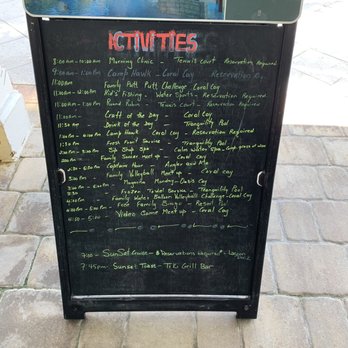 ACTIVITIES
8:00 Am - 10:00 Am Morning Clinic - Tennis court Reservation Required
9:00 - 1:00 Pm Camp Hawk - Coral Cay Reservation
11:00 Am Family Putt Putt Challenge Coral Cay
Kid's Fishing - Water Sports - Reservation Required
Round Robin - Tennis Court - Reservation Required
11:00 Am Craft of the Day - Coral Cay
11:30 Am Drink of the Day - Tranquility Pool
Camp Hawk - Coral Cay - Reservation Required
Fresh Fruit Service - Tranquility Pool
Sip Shop Spa - Calm Water Spa - glass of wine
Family Soccer meet up - Coral Cay
Captain's Hour - Angler and Ale
Family Volleyball Meet up - Coral Cay
Margarita Monday - Oasis Cay
Frozen Towel Service - Tranquility Pool
Family Water Balloon Volleyball Challenge - Coral Cay
Free Family Bingo - Resort Pool
Video Game Meet up - Coral Cay
7:00 - Sunset Cruise - Reservations Required -
7:45pm - Sunset Toast - Tiki Grill Bar